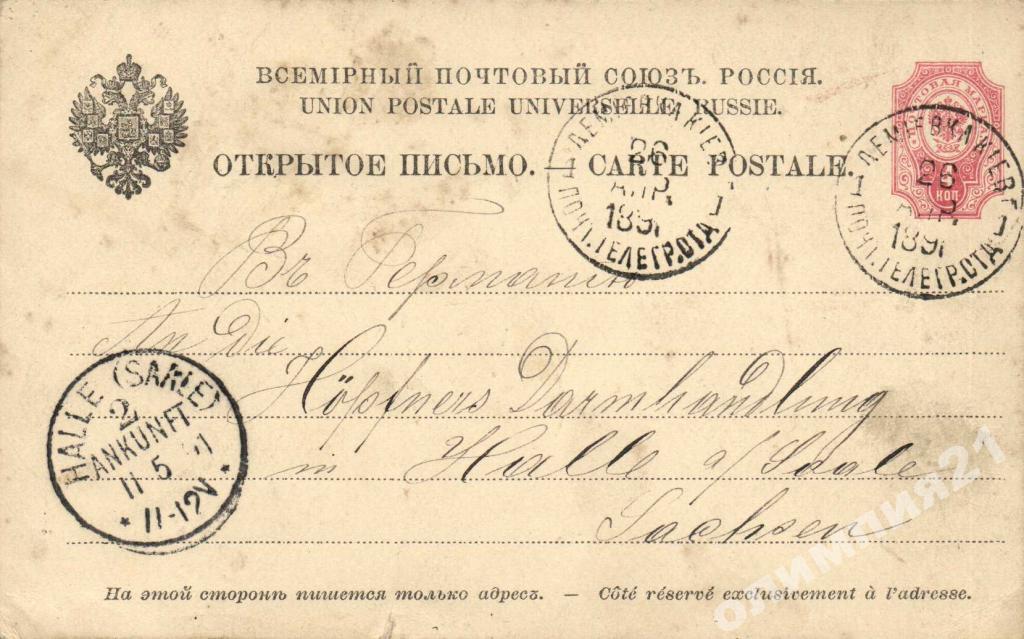 ВСЕМІРНЫЙ ПОЧТОВЫЙ СОЮЗЪ. РОССІЯ.
UNION POSTALE UNIVERSELLE. RUSSIE.
ОТКРЫТОЕ ПИСЬМО. — CARTE POSTALE.
ДЕМІЕВКА КІЕВ. 1
26
АПР.
1891
ПОЧТ. ТЕЛЕГР. ОТД.
МАРКА
КОП
ДЕМІЕВКА КІЕВ. Г.
26
АПР.
1891
ПОЧТ. ТЕЛЕГР. ОТД.
Въ Германію
An die
Höpfners Darmhandlung
in Halle a/Saale
Sachsen
HALLE (SAALE)
2
ANKUNFT
11 5 91
* 11-12V *
На этой сторонѣ пишется только адресъ. — Côté réservé exclusivement à l'adresse.
олимпия21